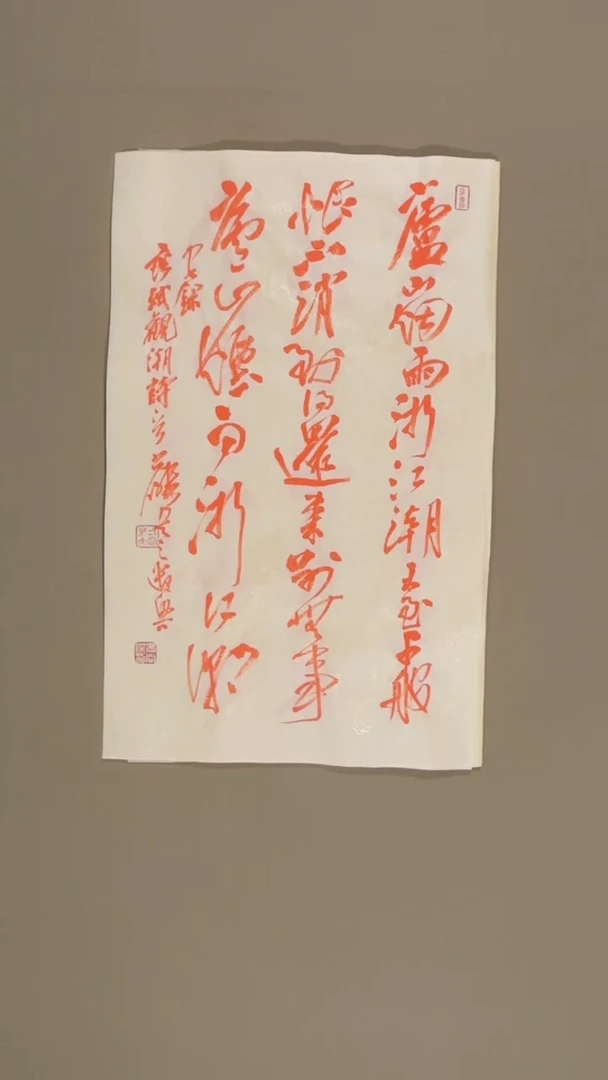 廬山烟雨浙江潮未到千般
恨不消到得還來別無事
廬山煙雨浙江潮
錄
蘇軾觀潮詩